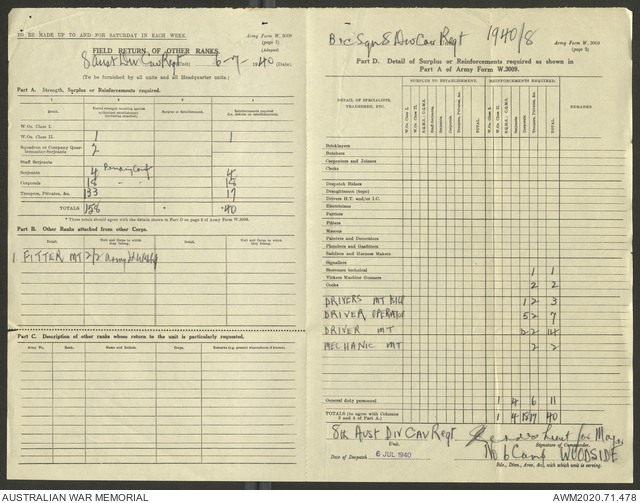 TO BE MADE UP TO AND FOR SATURDAY IN EACH WEEK.
Army Form W. 3009
(page 1)
(Adapted)
FIELD RETURN OF OTHER RANKS.
8 Aust Div Cav Regt (Unit) 6-7-1940 (Date)
(To be furnished by all units and all Headquarter units.)
Part A. Strength, Surplus or Reinforcements required.
1 2 3 4
Detail.
Surplus to Establishment.
Reinforcements required
W.Os. Class I.
W.Os. Class II. 1 1
Squadron or Company Quarter-master-Serjeants 2
Staff Serjeants
Serjeants 4 4
Corporals 18 18
Troopers, Privates, &c. 133 17
TOTALS 158 * *40
* These totals should agree with the details shown in Part D on page 2 of Army Form W.3009.
Part B. Other Ranks attached from other Corps.
Detail. Unit and Corps to which they belong. Detail. Unit and Corps to which they belong.
1. FITTER MT 2/2 Army
Part C. Description of other ranks whose return to the unit is particularly requested.
Army No. Rank. Name and Initials. Corps. Remarks
B Sqn 8 Div Cav Regt 1940/8
Army Form W. 3009
Part D. Detail of Surplus or Reinforcements required as shown in
Part A of Army Form W.3009.
SURPLUS TO ESTABLISHMENT. REINFORCEMENTS REQUIRED.
DETAIL OF SPECIALISTS, TRADESMEN, ETC.
W.Os. Class I. W.Os. Class II. S.Q.M.S., C.Q.M.S. Staff-Serjeants. Serjeants. Corporals. Troopers, Privates, &c. TOTAL. W.Os. Class I. W.Os. Class II. Serjeants. Corporals. Troopers, Privates, &c. TOTAL.
REMARKS
Bricklayers
Butchers
Carpenters and Joiners
Clerks
Despatch Riders
Draughtsmen (topo)
Drivers H.T. and/or I.C.
Electricians
Farriers
Fitters
Masons
Painters and Decorators
Plumbers and Gasfitters
Saddlers and Harness Makers
Signallers
Storemen technical 1 1
Vickers Machine Gunners
Cooks 2 2
DRIVERS MT 1 2 3
DRIVER OPERATOR 5 2 7
DRIVER MT 14
MECHANIC MT 2 2
General duty personnel 1 4 6 11
TOTALS (to agree with Columns 3 and 4 of Part A) 1 4 18 17 40
8th AUST DIV CAV REGT
Unit.
Lieut for Major
Signature of Commander.
Date of Despatch 6 JUL 1940
No 6 Camp WOODSIDE
Bde., Divn., Area, &c., with which unit is serving.
AUSTRALIAN WAR MEMORIAL
AWM2020.71.478